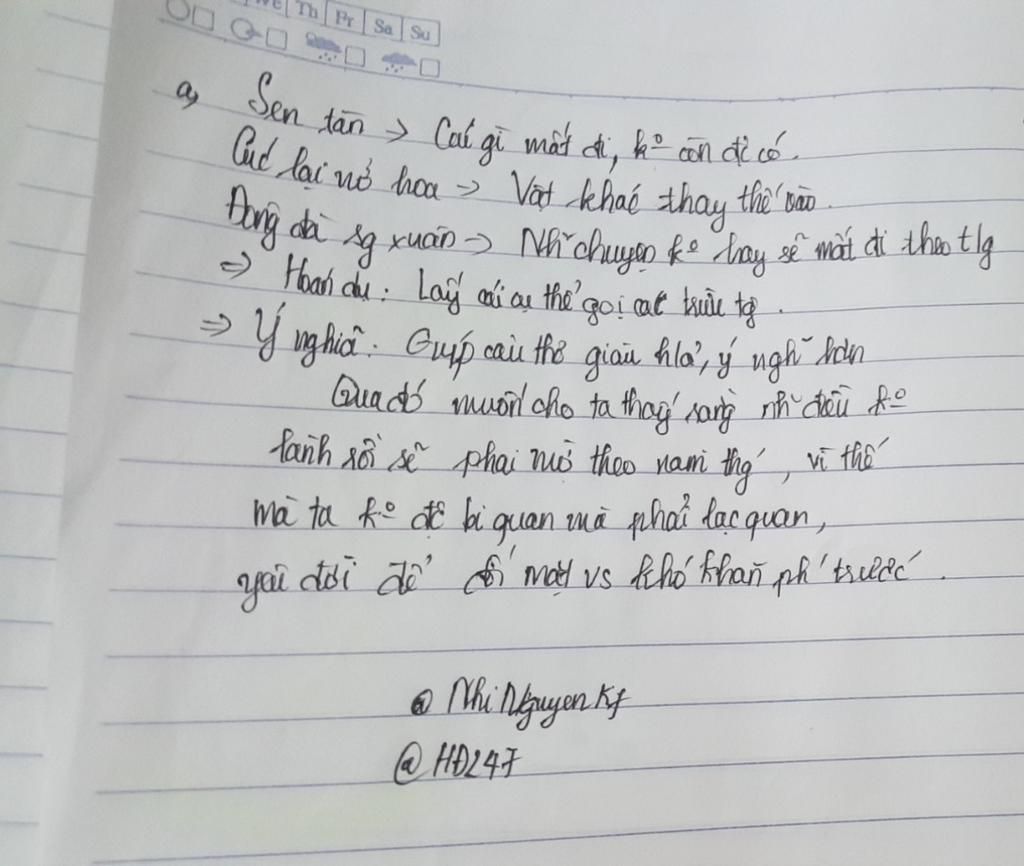 We Th Fr Sa Su
a, Sen tàn → Cái gì mất đi, kº còn đc có.
Cúc lại nở hoa → Vật khác thay thế vào.
Đông dài sg xuân → Nh~ chuyện kº hay sẽ mất đi theo tlg
⇒ Hoán dụ: Lấy cái cụ thể gọi cái trừu tg.
⇒ Ý nghĩa: Giúp câu thơ giàu h/ả, ý nghĩ hơn
Qua đó muốn cho ta thấy rằng nh~ điều kº
lành rồi sẽ phai mờ theo năm thg, vì thế
mà ta kº đc bi quan mà phải lạc quan,
yêu đời để đối mặt vs khó khăn ph' trước.
@ Nhi Nguyen Kf
@ HĐ247